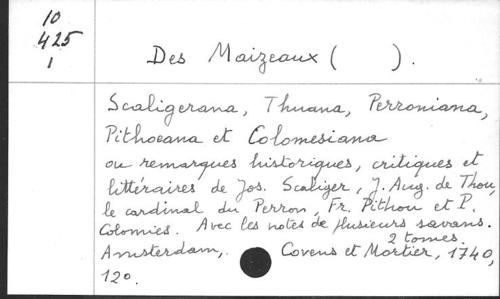 10
425
1
Des Maizeaux ( ).
Scaligerana, Thuana, Perroniana,
Pithoeana et Colomesiana
ou remarques historiques, critiques et
littéraires de Jos. Scaliger, J. Aug. de Thou,
le cardinal du Perron, Fr. Pithou et P.
Colomies. Avec les notes de plusieurs savans.
2 tomes.
Amsterdam, Covens et Mortier, 1740,
12o.